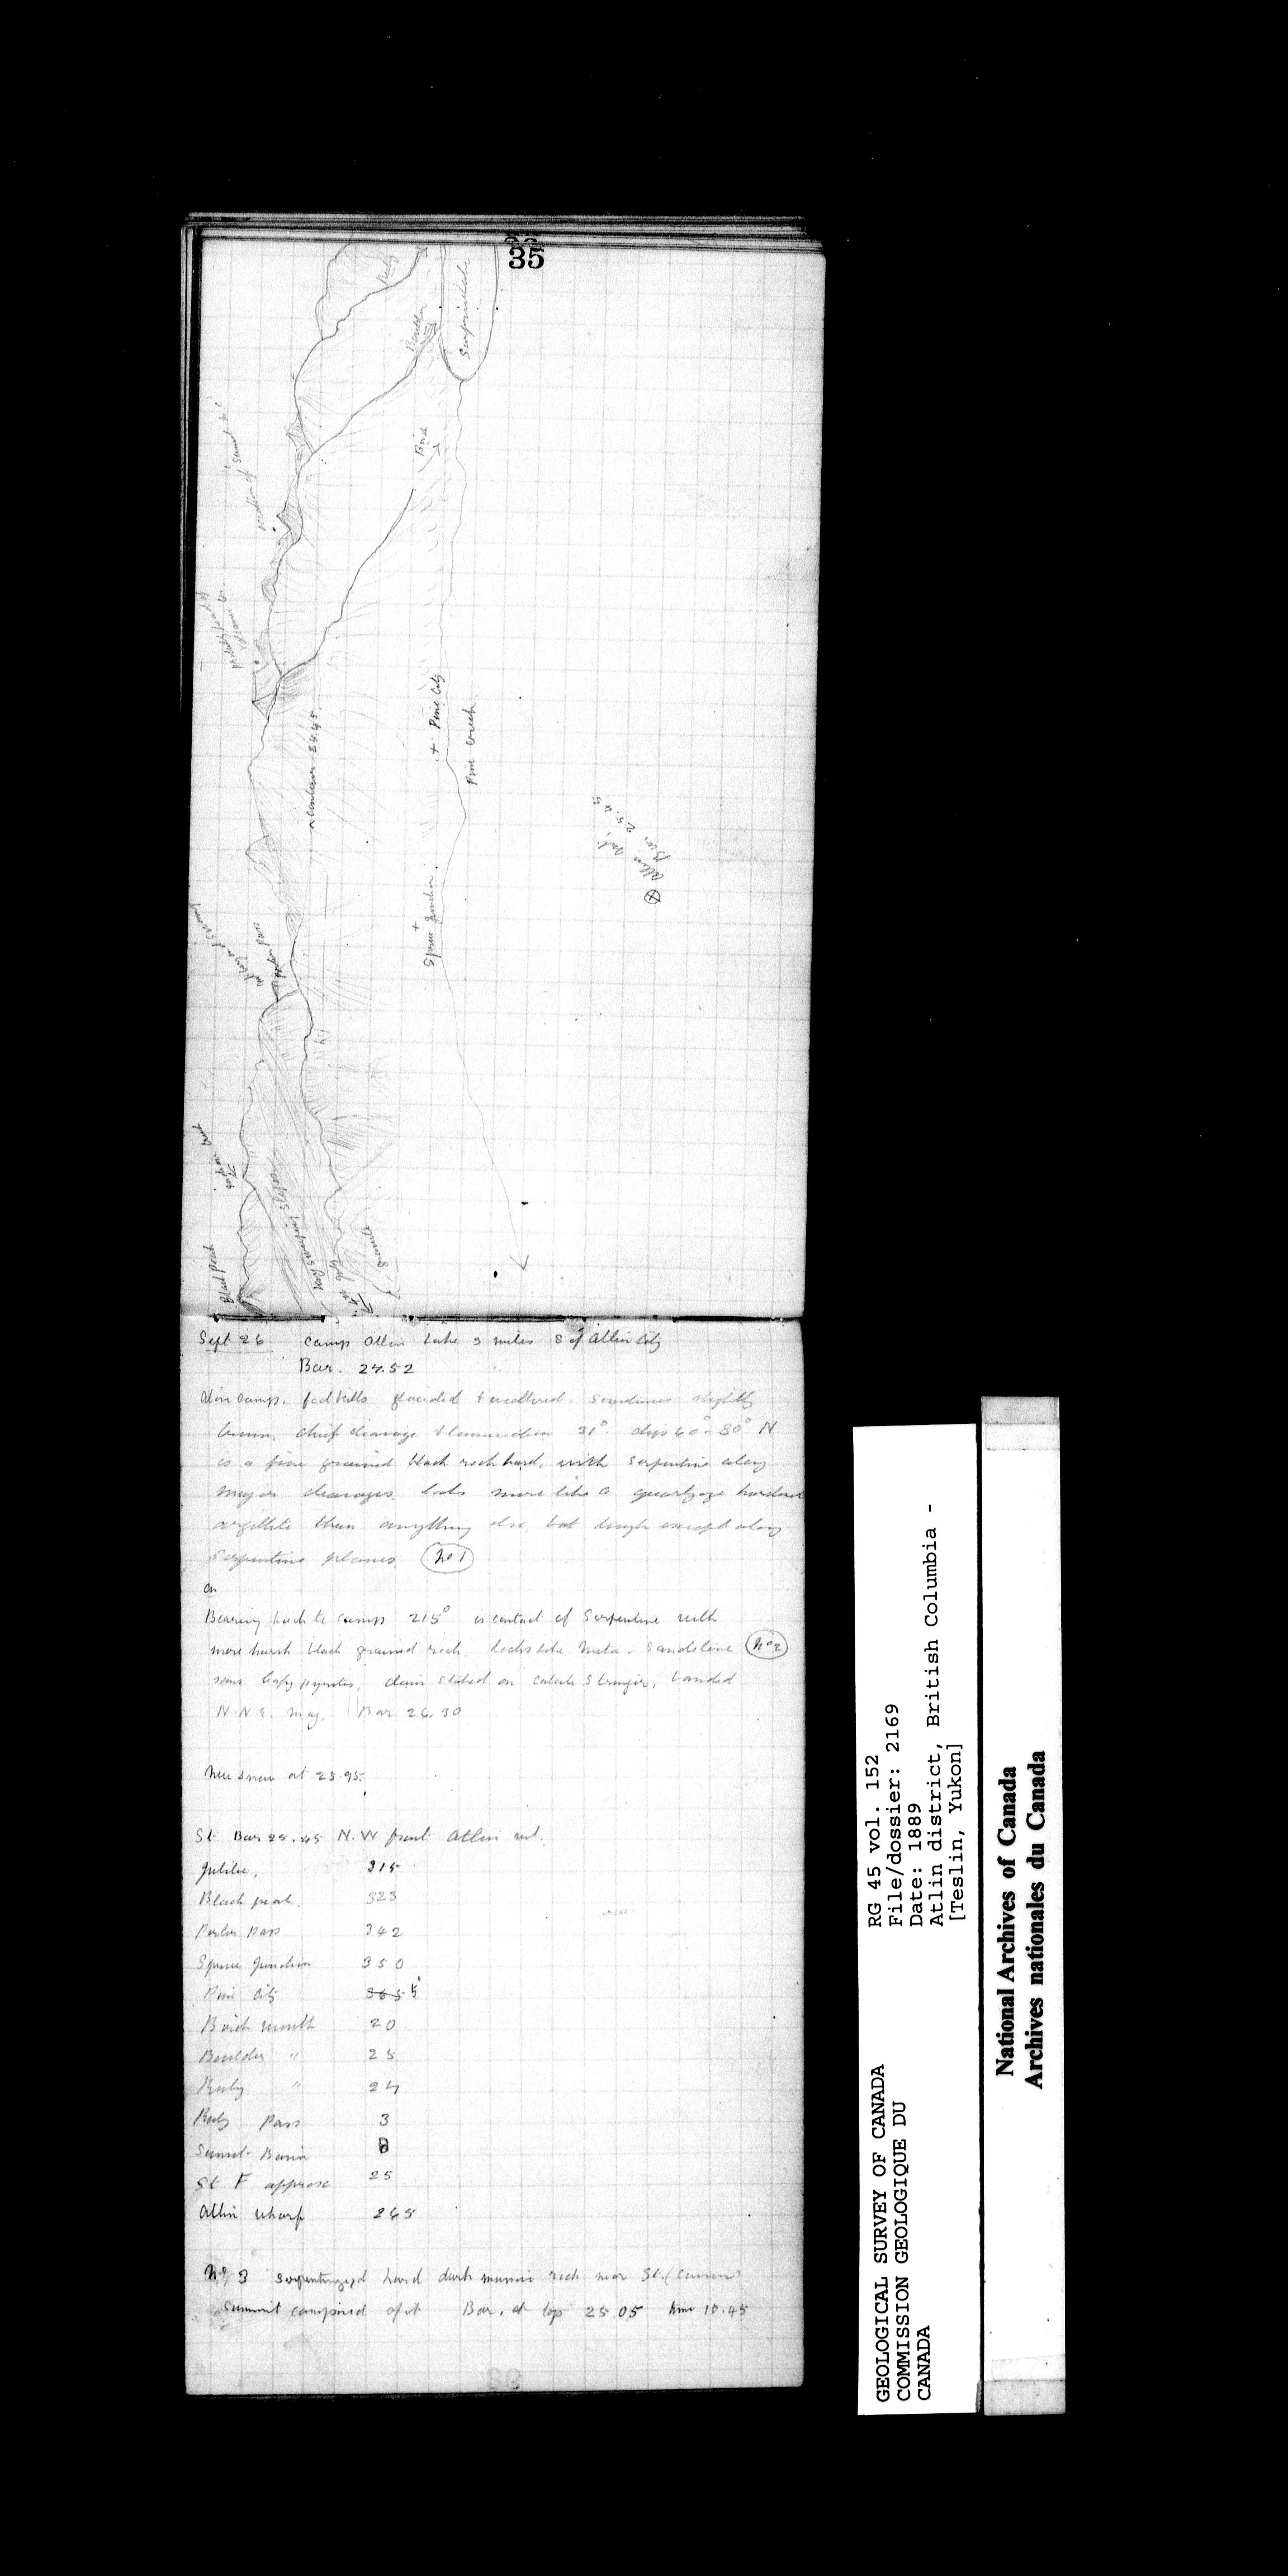 35
Ruby
Boulder
Surprise Lake
Birch
+ Pine City
Pine Creek
contour 25.45
Atlin Mt.
Bar 25.45
+
Spruce Junction
Porter pass
Long sweeping slopes
Black Peak
granite
Sept 26 Camp Atlin Lake 3 miles S of Atlin City
Bar. 27.52
foot hills glaciated & scattered. Sometimes slightly
brown. chief cleavage & lamination 31° dips 60°-80° N
is a fine grained black rock hard, with serpentine along
major cleavages. looks more like a quartzose hardened
argillite than anything else, but tough except along
Serpentine planes. No 1
on
Bearing back to camp 215° is contact of Serpentine with
more harsh black grained rock looks like meta. Sandstone No 2
some leafy pyrites, claim staked on calcite Stringer, banded
N.N.E. mag. Bar 26.30
New snow at 25.95.
St Bar 25.45 N.W front Atlin mt.
Jubilee, 315
Black peak. 323
Porter pass 342
Spruce Junction 350
Pine City 365 5°
Birch mouth 20
Boulder " 25
Ruby " 27
Ruby Pass 3
Sunset Basin 8
St F approx 25
Atlin wharf 265
No 3 serpentinized hard dark massive rock near St.
Summit comprised of it Bar. at top 25.05 time 10.45
GEOLOGICAL SURVEY OF CANADA
COMMISSION GEOLOGIQUE DU
CANADA
RG 45 vol. 152
File/dossier: 2169
Date: 1889
Atlin district, British Columbia -
[Teslin, Yukon]
National Archives of Canada
Archives nationales du Canada